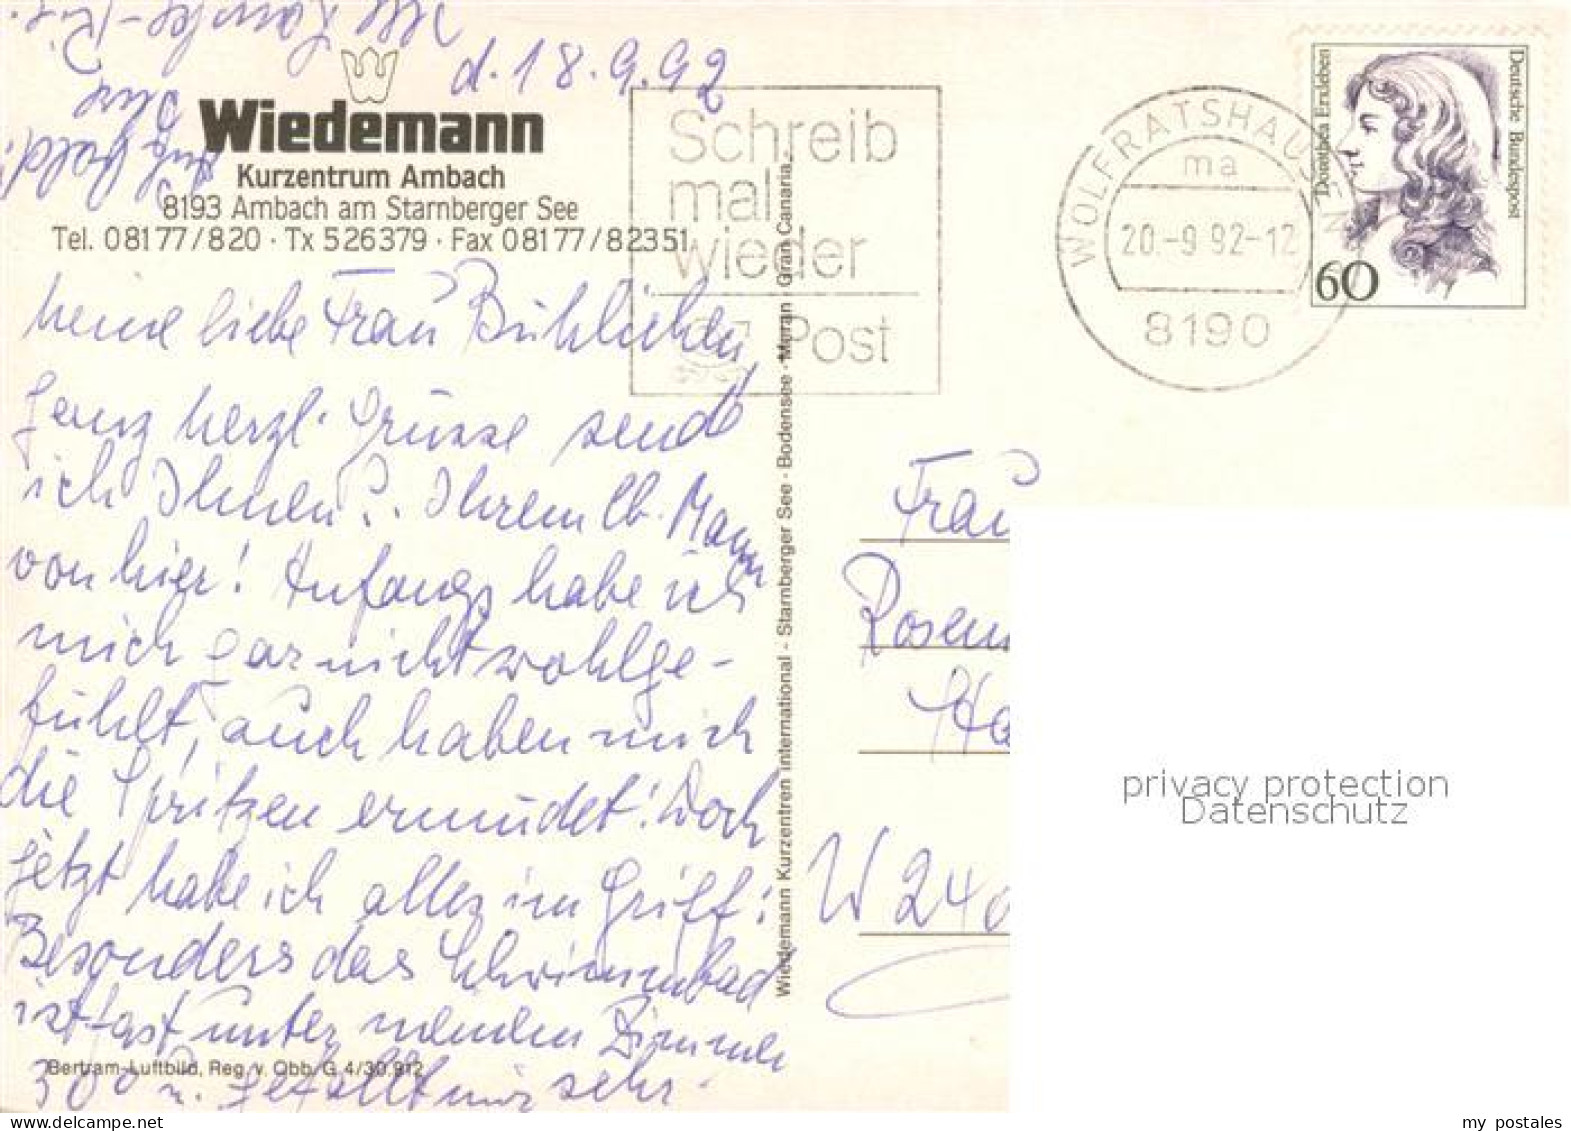 d. 18.9.92
Wiedemann
Kurzentrum Ambach
8193 Ambach am Starnberger See
Tel. 08177/820 · Tx 526379 · Fax 08177/82351
Meine liebe Frau
ganz herzl. Grüsse send
ich Ihnen Ihrem lb. Mann
von hier! Anfangs habe ich
mich gar nicht wohlge-
fühlt, auch haben mich
die Spritzen ermüdet! Doch
jetzt habe ich alles im Griff!
Besonders das Schwimmbad
ist fast unter meinem Zimmer
300 gefällt mir sehr.
Bertram-Luftbild, Reg. v. Obb. G 4/30.912
Wiedemann Kurzentren international - Starnberger See · Bodensee · Meran · Gran Canaria
Schreib
mal
wieder
Post
WOLFRATSHAUSEN
ma
20.-9 92-12
8190
Dorothea Erxleben
Deutsche Bundespost
60
Frau
W 240
privacy protection
Datenschutz
my postales